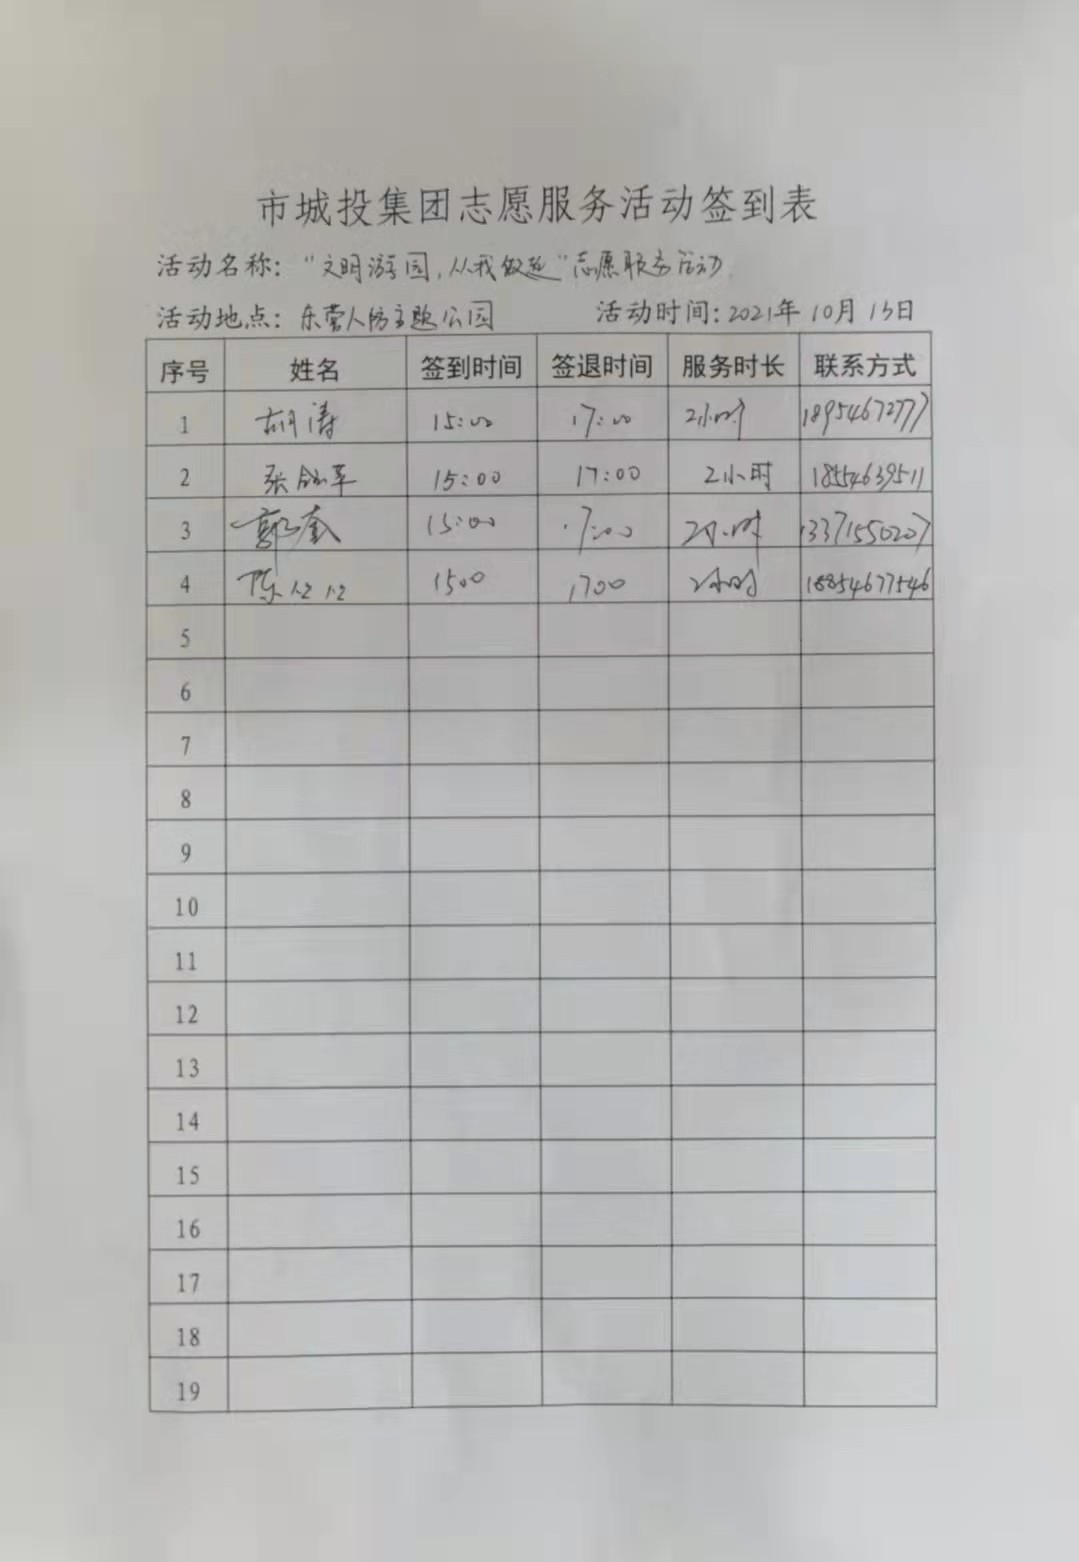 市城投集团志愿服务活动签到表
活动名称："文明游园，从我做起"志愿服务活动
活动地点：东营人防主题公园 活动时间：2021年10月13日
序号 姓名 签到时间 签退时间 服务时长 联系方式
1 胡涛 15:00 17:00 2小时 18954672777
2 张 15:00 17:00 2小时 18554639511
3 郭奎 15:00 17:00 2小时 13371550207
4 陈 1500 1700 2小时 18854677546
5
6
7
8
9
10
11
12
13
14
15
16
17
18
19